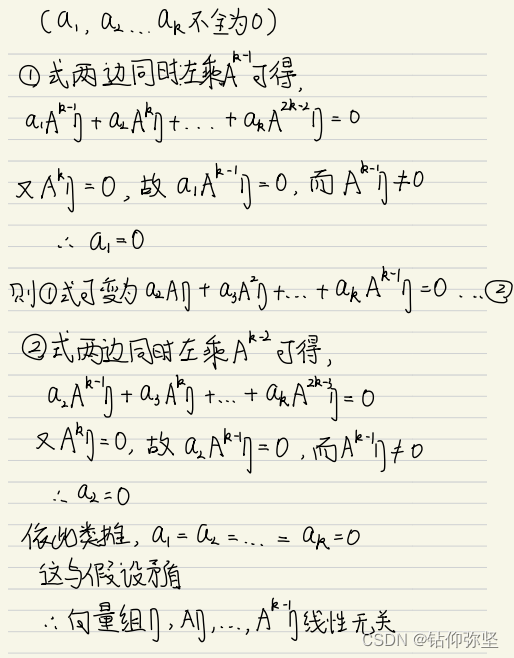 (a₁, a₂ ... aₖ 不全为0)
①式两边同时左乘Aᵏ⁻¹可得,
a₁Aᵏ⁻¹η + a₂Aᵏη + ... + aₖA²ᵏ⁻²η = 0
又Aᵏη = 0, 故 a₁Aᵏ⁻¹η = 0, 而 Aᵏ⁻¹η ≠ 0
∴ a₁ = 0
则①式可变为 a₂Aη + a₃A²η + ... + aₖAᵏ⁻¹η = 0 ... ②
②式两边同时左乘Aᵏ⁻²可得,
a₂Aᵏ⁻¹η + a₃Aᵏη + ... + aₖA²ᵏ⁻³η = 0
又Aᵏη = 0, 故 a₂Aᵏ⁻¹η = 0, 而Aᵏ⁻¹η ≠ 0
∴ a₂ = 0
依此类推, a₁ = a₂ = ... = aₖ = 0
这与假设矛盾
∴ 向量组η, Aη, ..., Aᵏ⁻¹η线性无关
CSDN @钻仰弥坚